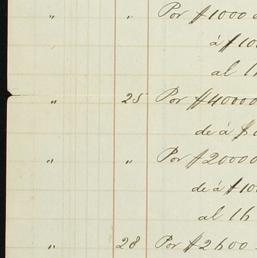 " " Por $1000
á $10
al 1
" 25 Por $40000
de á $
" " Por $20000
de á $10
al 1½
" 28 Por $2600